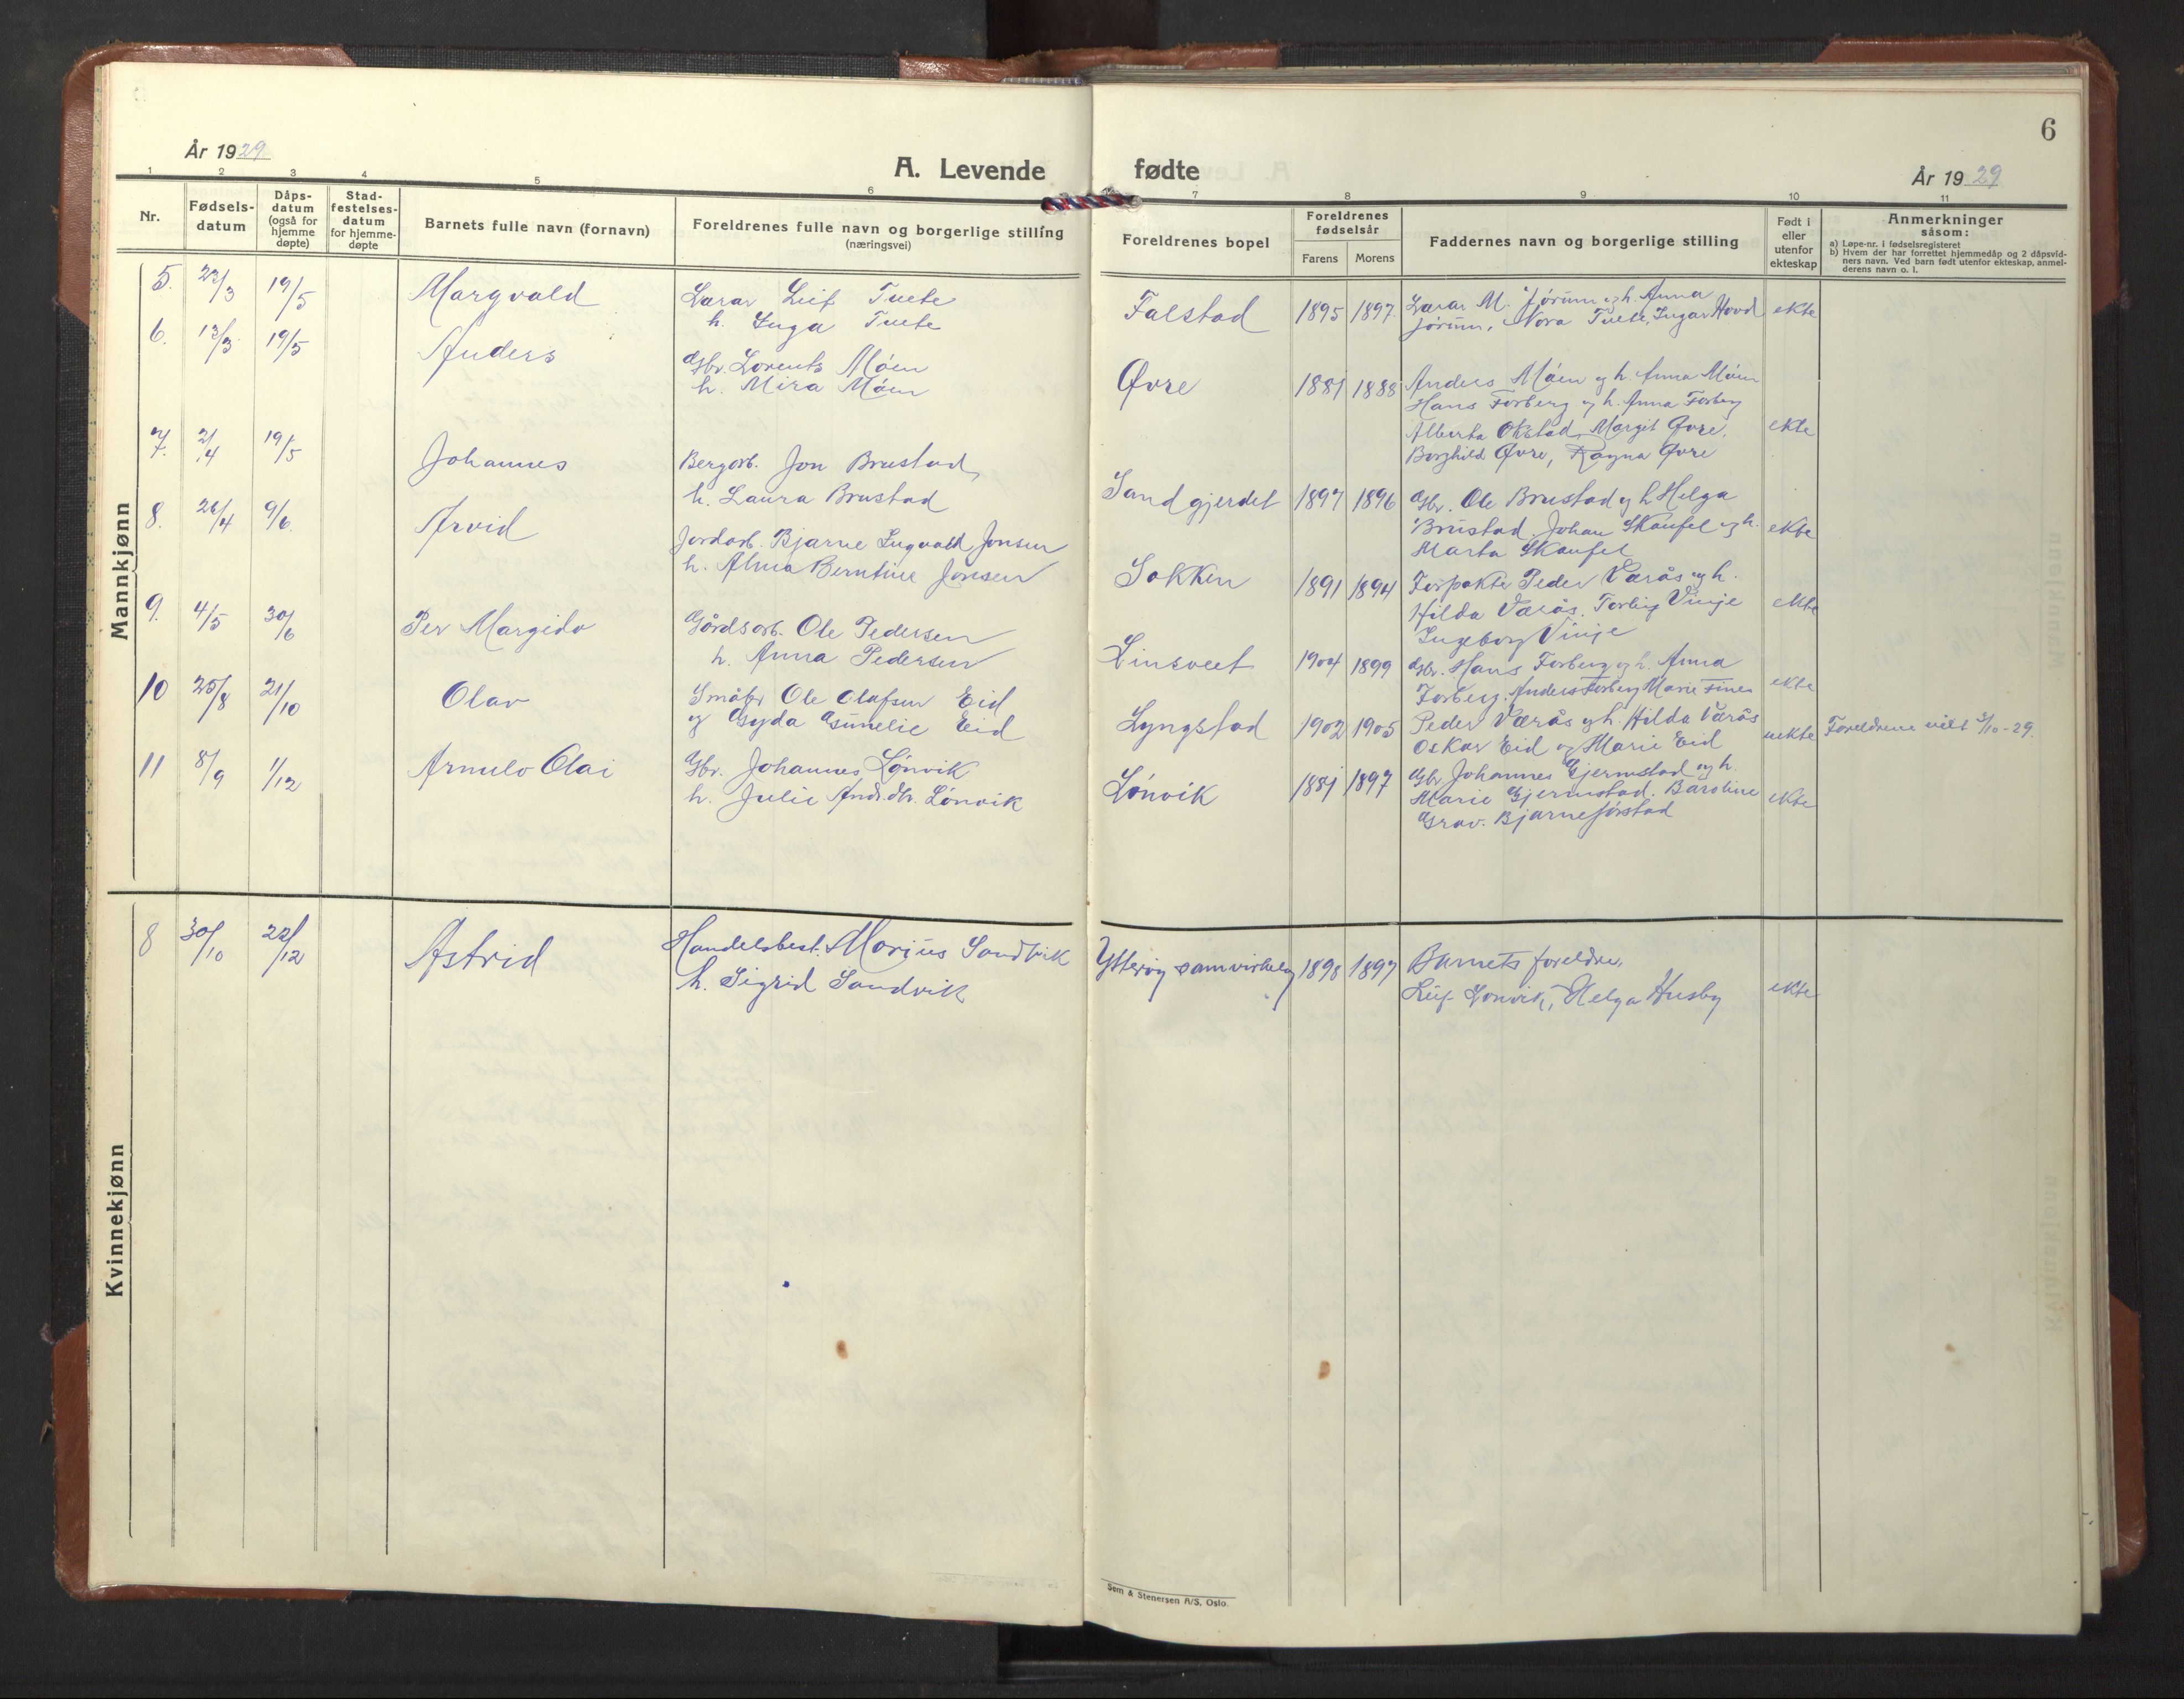 År 1929
A. Levende
1 2 3 4 5 6
Nr.
Fødsels-
datum
Dåps-
datum
(også for
hjemme
døpte)
Stad-
festelses-
datum
for hjemme-
døpte
Barnets fulle navn (fornavn)
Foreldrenes fulle navn og borgerlige stilling
(næringsvei)
Mannkjønn
5. 23/3 19/5 Margvald Leif Tuete
h. Inga Tuete
6. 13/3 19/5 Anders Gbr. Lorents Móen
h. Mira Móen
7. 2/4 19/5 Johannes Bergarb. Jon Brustad,
h. Laura Brustad
8. 26/4 9/6. Arvid Jordarb. Bjarne Ingvald Jonsen
h. Alma Berntine Jonsen
9. 4/5 30/6 Per Margido Gårdsarb. Ole Pedersen
h. Anna Pedersen
10 25/8 21/10 Olav Småbr Ole Olafsen Eid
og Gyda Gunelie Eid
11 8/9 1/12 Arnulv Olai Gbr. Johannes Lónvik
h. Julie Lónvik
Kvinnekjønn
8 30/10 22/12 Astrid Handelsbest. Marius Sandvik
h. Sigrid Sandvik
6
fødte
År 1929
7 8 9 10 11
Foreldrenes bopel
Foreldrenes
fødselsår
Farens Morens
Faddernes navn og borgerlige stilling
Født i
eller
utenfor
ekteskap
Anmerkninger
såsom:
a) Løpe-nr. i fødselsregisteret
b) Hvem der har forrettet hjemmedåp og 2 dåpsvid-
ners navn. Ved barn født utenfor ekteskap, anmel-
derens navn o. l.
Falstad 1895 1897. M. Jórum og h. Anna
Jórum, Nora Tuete, Ingar Hovd ekte
Øvre 1881 1888 Anders Móen og h. Anna Móen
Hans Forberg og h. Anna Forberg
Alberta Okstad, Margit Øvre, ekte
Borghild Øvre, Ragna Øvre
Sandgjerdet 1897 1896 Gbr. Ole Brustad og h Helga
Brustad, Johan Skaufel og h. ekte
Marta Skaufel
Sokkin 1891 1894 Forpakter Peder Værås og h.
Hilda Værås. Vinje ekte
Ingeborg Vinje
Linsveet 1904 1899 Gbr. Hans Forberg og h. Anna
Forberg. Anders Forberg Marie Fines ekte
Lyngstad 1902 1905 Peder Værås og h. Hilda Værås
Oskar Eid og Marie Eid uekte Foreldrene viet 3/10-29.
Lónvik 1881 1897 Gbr. Johannes Gjermstad og h.
Marie Gjermstad. Baroline ekte
Grav. Bjarne Jórstad
Ytterøy samvirkelag 1898 1897 Barnets foreldre,
Leif Lonvik, Helga Husby ekte
Sem & Stenersen A/S, Oslo.